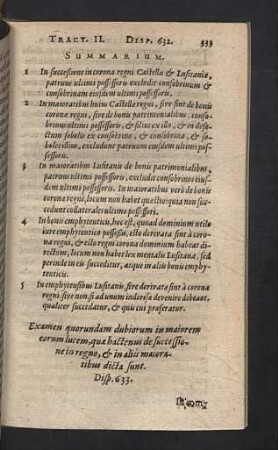 TRACT. II. DISP. 632. 333
SUMMARIUM.
1 In successione in corona regni Castellæ & Lusitaniæ,
patruus ultimi possessoris excludit consobrinum &
consobrinam eiusdem ultimi possessoris.
2 In maioratibus huius Castellæ regni, sive sint de bonis
coronæ regni, sive de bonis patrimonialibus, conso-
brinus ultimi possessoris, & filius ex illo, & in de-
ctum sobolis ex consobrino, & consobrina, & so-
boles illius, excludunt patruum eiusdem ultimi pos-
sessoris.
3 In maioratibus Lusitanis de bonis patrimonialibus,
patruus ultimi possessoris, excludit consobrinos eiusdem
ultimi possessoris. In maioratibus verò de bonis
coronæ regni, locum non habet quæstio quia non suc-
cedunt collaterales ultimi possessori.
4 In bonis emphyteuticis, hoc est, quoad dominium utile
iure emphyteutico possessis, esto derivata sint à coro-
na regni, & esto regni corona dominium habeat di-
rectum, locum non habet lex mentalis Lusitana, sed
perinde in eis succeditur, atque in aliis bonis emphy-
teuticis.
5 In emphyteusibus Lusitanis sive derivatæ sint à corona
regni sive non si ad unum indivisa devenire debeant,
qualiter succedatur, & quis cui præferatur.
Examen quorundam dubiorum in maiorem
eorum lucem, quæ hactenus de successio-
ne in regno, & in aliis maiora-
tibus dicta sunt.
Disp. 633.